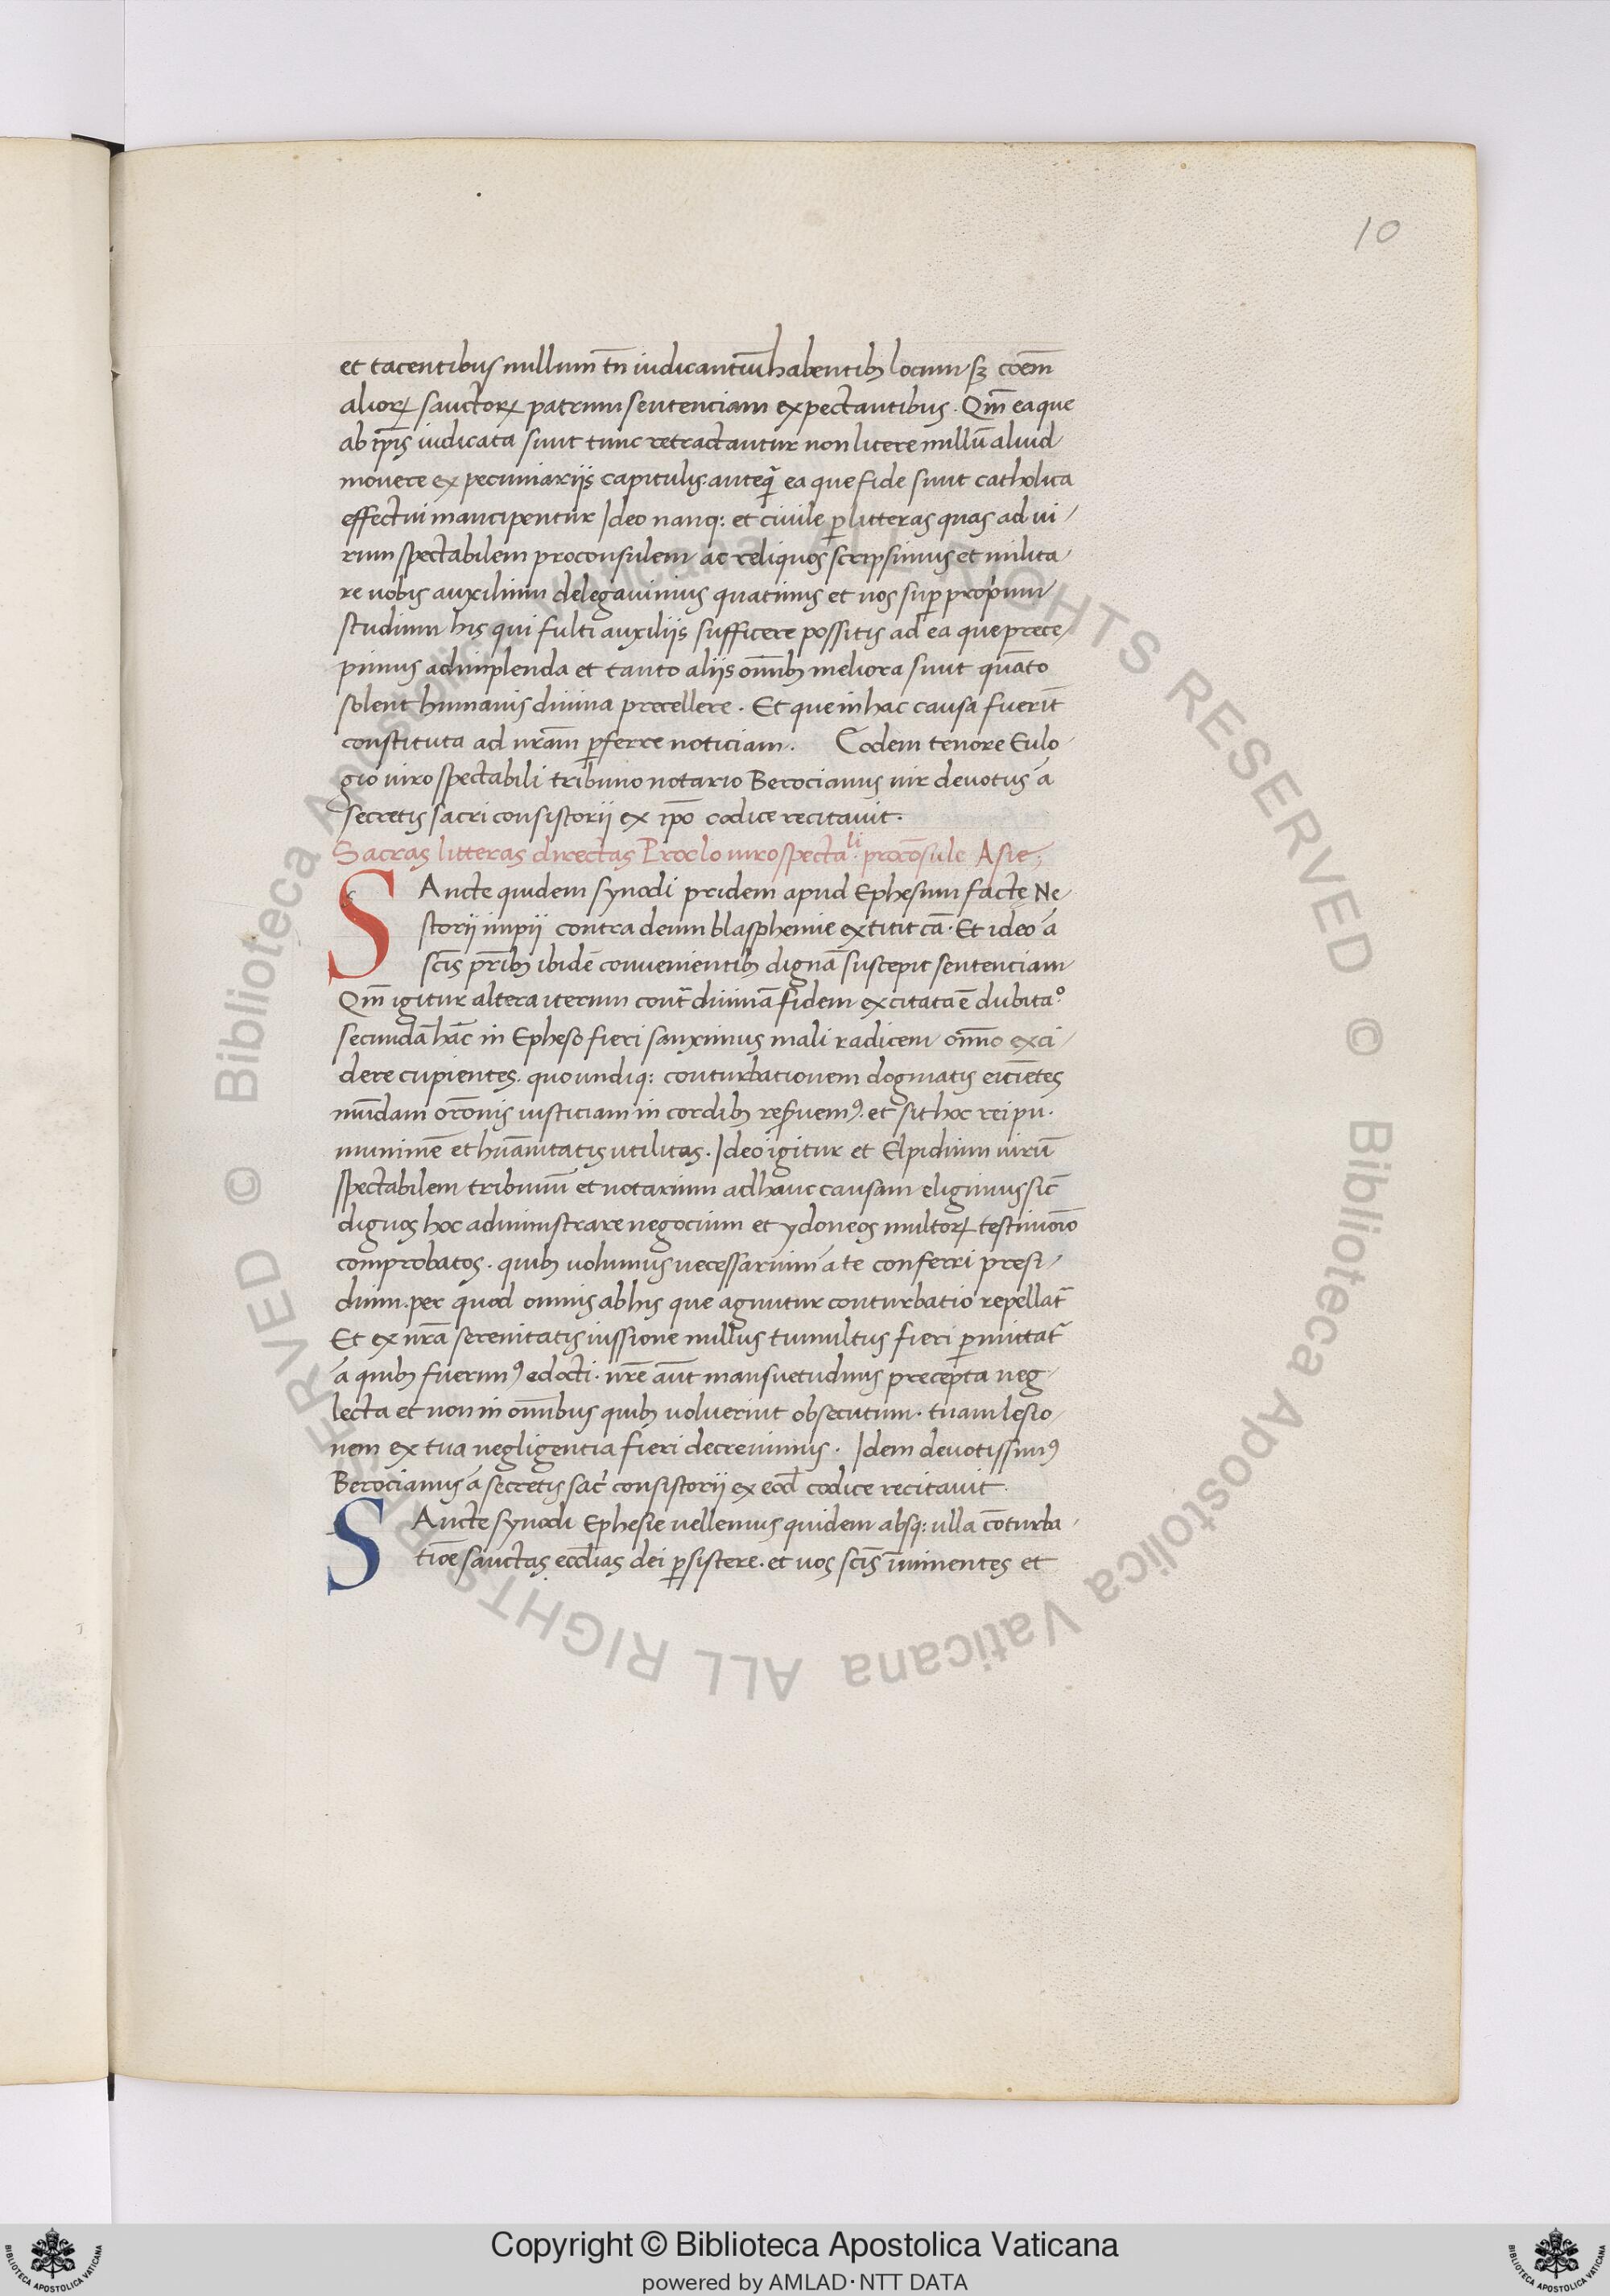 10
et tacentibus nullum tn̄ iudicantiū habentibꝫ locum sꝫ cōem̄
alioꝝ sanctoꝝ patrum sentenciam expectantibus. Qm̄ ea que
ab ip̄is iudicata sunt tunc retractantur non licere nullū aliud
movere ex pecuniariis capitulis anteq̄ ea que fide sunt catholica
effectui mancipentur Ideo nanq: et civile ꝑ litteras quas ad ui-
rum spectabilem proconsulem ac reliquos scripsimus et milita-
re vobis auxilium delegavimus quatinus et vos suꝑ proprium
studium his qui fulti auxiliis sufficere possitis ad ea que prece-
pimus adimplenda et tanto aliis om̄ibꝫ meliora sunt quāto
solent humanis divina precellere. Et que in hac causa fuerīt
constituta ad nr̄am ꝑferre noticiam. Eodem tenore Eulo-
gio viro spectabili tribuno notario Berocianus vir devotus ā
secretis sacri consistorii ex ip̄o codice recitavit.
Sacras litteras directas Proclo viro spectaˡⁱ. procōsule Asie;
SAncte quidem synodi pridem apud Ephesum factę Ne-
storii impii contra deum blasphemie extitit cā. Et ideo ā
scīs pr̄ibꝫ ibidē convenientibꝫ dignā suscepit sentenciam
Qm̄ igitur altera iterum cont̄ divinā fidem excitata ē dubitaº
secundā hāc in Epheso fieri sanximus mali radicem om̄no exci-
dere cupientes. quo undiq: conturbationem dogmatis eiciētes
mūdam orōnis iusticiam in cordibꝫ reẜvemꝰ. et sit hoc rei pu.
munimē et hūanitatis utilitas. Ideo igitur et Elpidium virū
spectabilem tribunū et notarium ad hanc causam eligimus sic̄
dignos hoc administrare negocium et ydoneos multoꝝ testimoīo
comprobatos. quibꝫ volumus necessarium ā te conferri presi-
dium. per quod omnis ab his que aguntur conturbatio repellat̄
Et ex nr̄a serenitatis iussione nullus tumultus fieri ꝑmittat̄
ā quibꝫ fuerimꝰ edocti. nr̄e aūt mansuetudinis precepta neg-
lecta et non in om̄ibus quibꝫ voluerint obsecutum. tuam lesio-
nem ex tua negligentia fieri decrevimus. Idem devotissimꝰ
Berocianus ā secretis sac̄ consistorii ex eod̄ codice recitavit.
SAncte synodi Ephesie vellemus quidem absq: ulla cōturba-
tiōe sanctas eccl̄ias dei ꝑsistere. et vos scīs īminentes et
© Biblioteca Apostolica Vaticana ALL RIGHTS RESERVED © Biblioteca Apostolica Vaticana ALL RIGHTS RESERVED
Copyright © Biblioteca Apostolica Vaticana
powered by AMLAD·NTT DATA
BIBLIOTECA APOSTOLICA VATICANA
BIBLIOTECA APOSTOLICA VATICANA